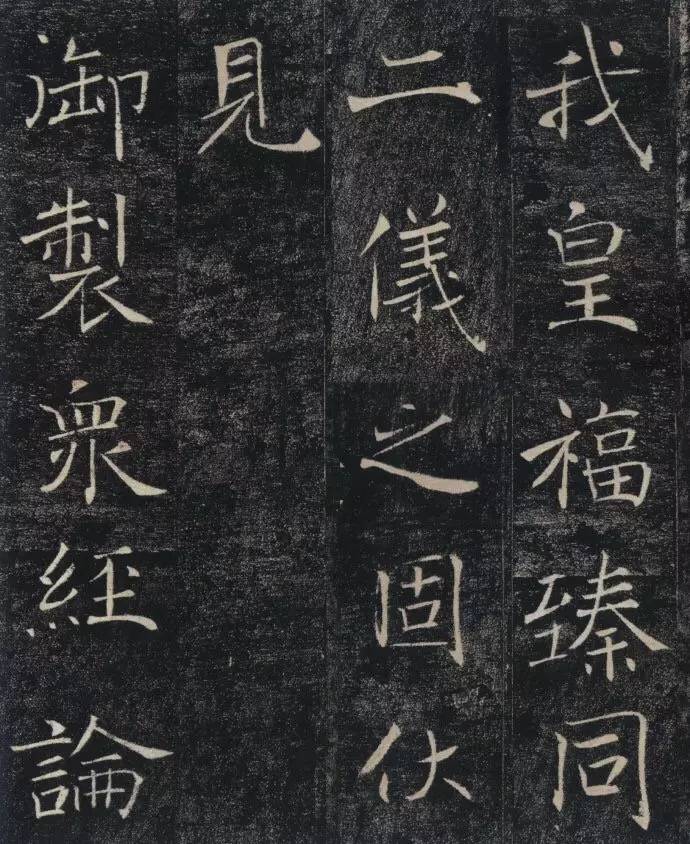 我皇福臻同
二儀之固伏
見
御製衆經論